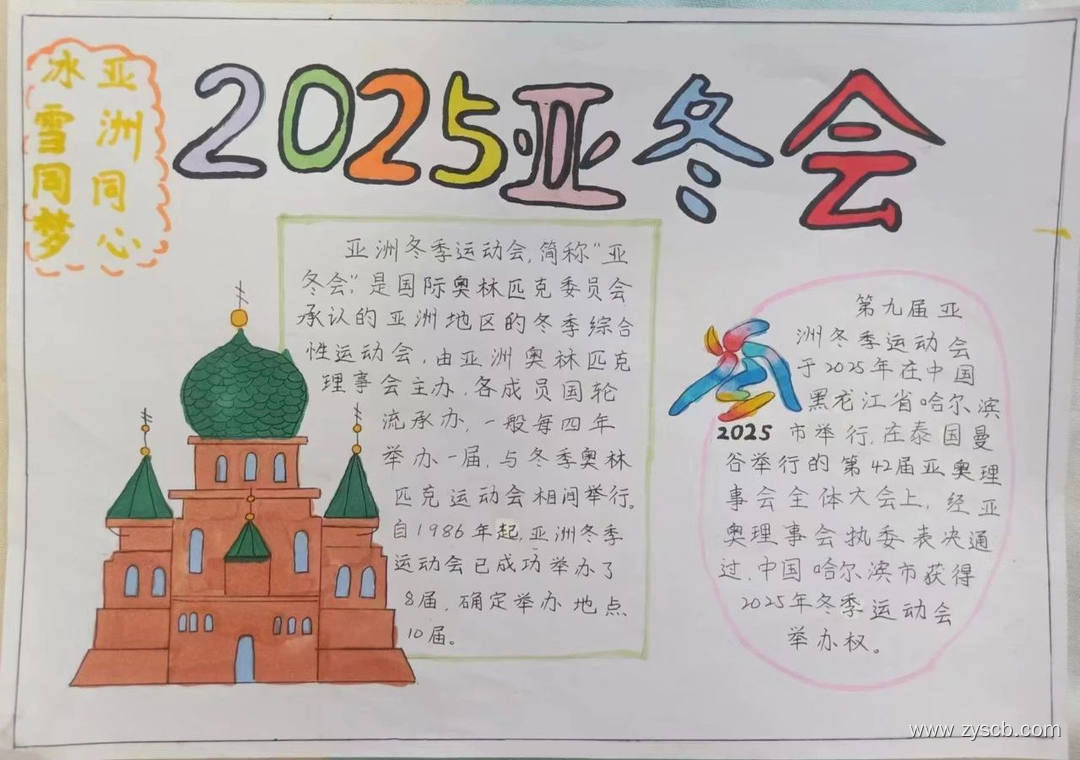 冰雪同梦
亚洲同心
2025亚冬会
亚洲冬季运动会,简称"亚
冬会",是国际奥林匹克委员会
承认的亚洲地区的冬季综合
性运动会,由亚洲奥林匹克
理事会主办,各成员国轮
流承办,一般每四年
举办一届,与冬季奥林
匹克运动会相间举行。
自1986年起,亚洲冬季
运动会已成功举办了
8届,确定举办地点
10届。
第九届亚
洲冬季运动会
于2025年在中国
黑龙江省哈尔滨
2025
市举行,在泰国曼
谷举行的第42届亚奥理
事会全体大会上,经亚
奥理事会执委表决通
过,中国哈尔滨市获得
2025年冬季运动会
举办权。
www.zyscb.com